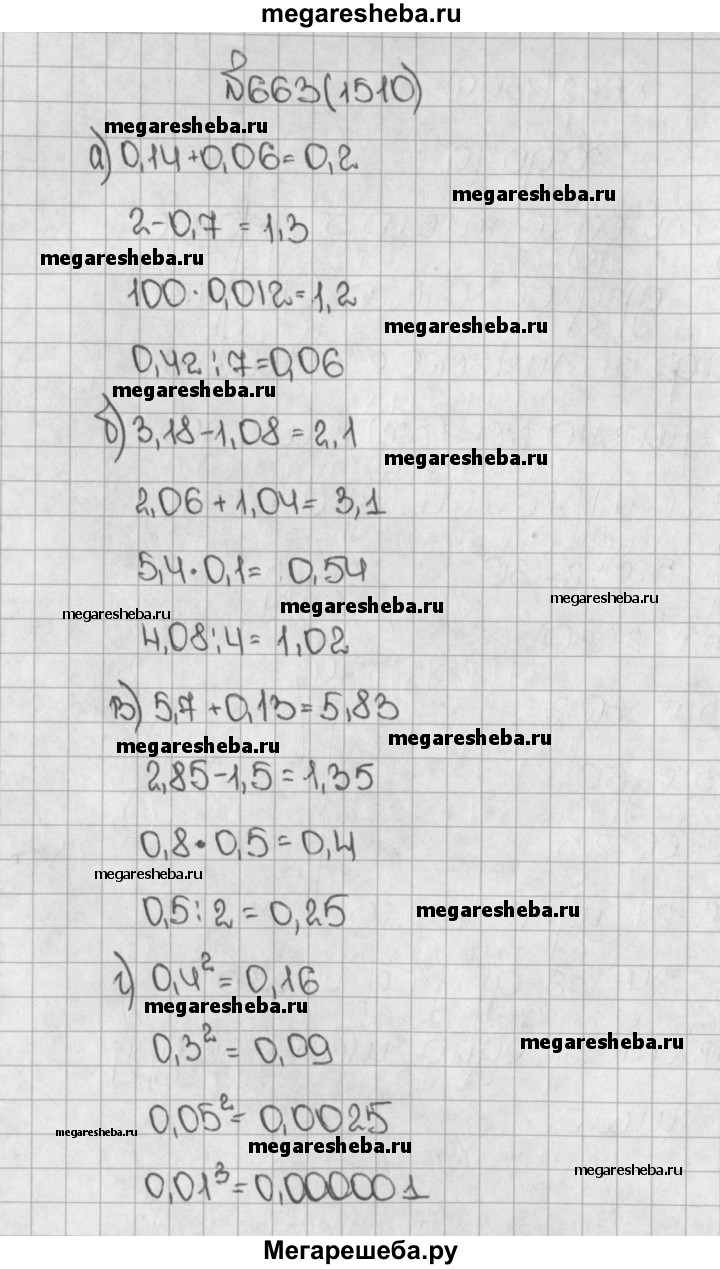 megaresheba.ru
№663(1510)
megaresheba.ru
а) 0,14+0,06=0,2
megaresheba.ru
2-0,7 = 1,3
megaresheba.ru
100·0,012=1,2
megaresheba.ru
0,42:7=0,06
megaresheba.ru
б) 3,18-1,08=2,1
megaresheba.ru
2,06+1,04= 3,1
5,4·0,1= 0,54
megaresheba.ru
megaresheba.ru
megaresheba.ru
4,08:4=1,02
в) 5,7+0,13=5,83
megaresheba.ru
megaresheba.ru
2,85-1,5=1,35
0,8·0,5=0,4
megaresheba.ru
0,5:2=0,25
megaresheba.ru
г) 0,4²=0,16
megaresheba.ru
0,3²=0,09
megaresheba.ru
0,05²=0,0025
megaresheba.ru
megaresheba.ru
megaresheba.ru
0,01³=0,000001
Мегарешеба.ру